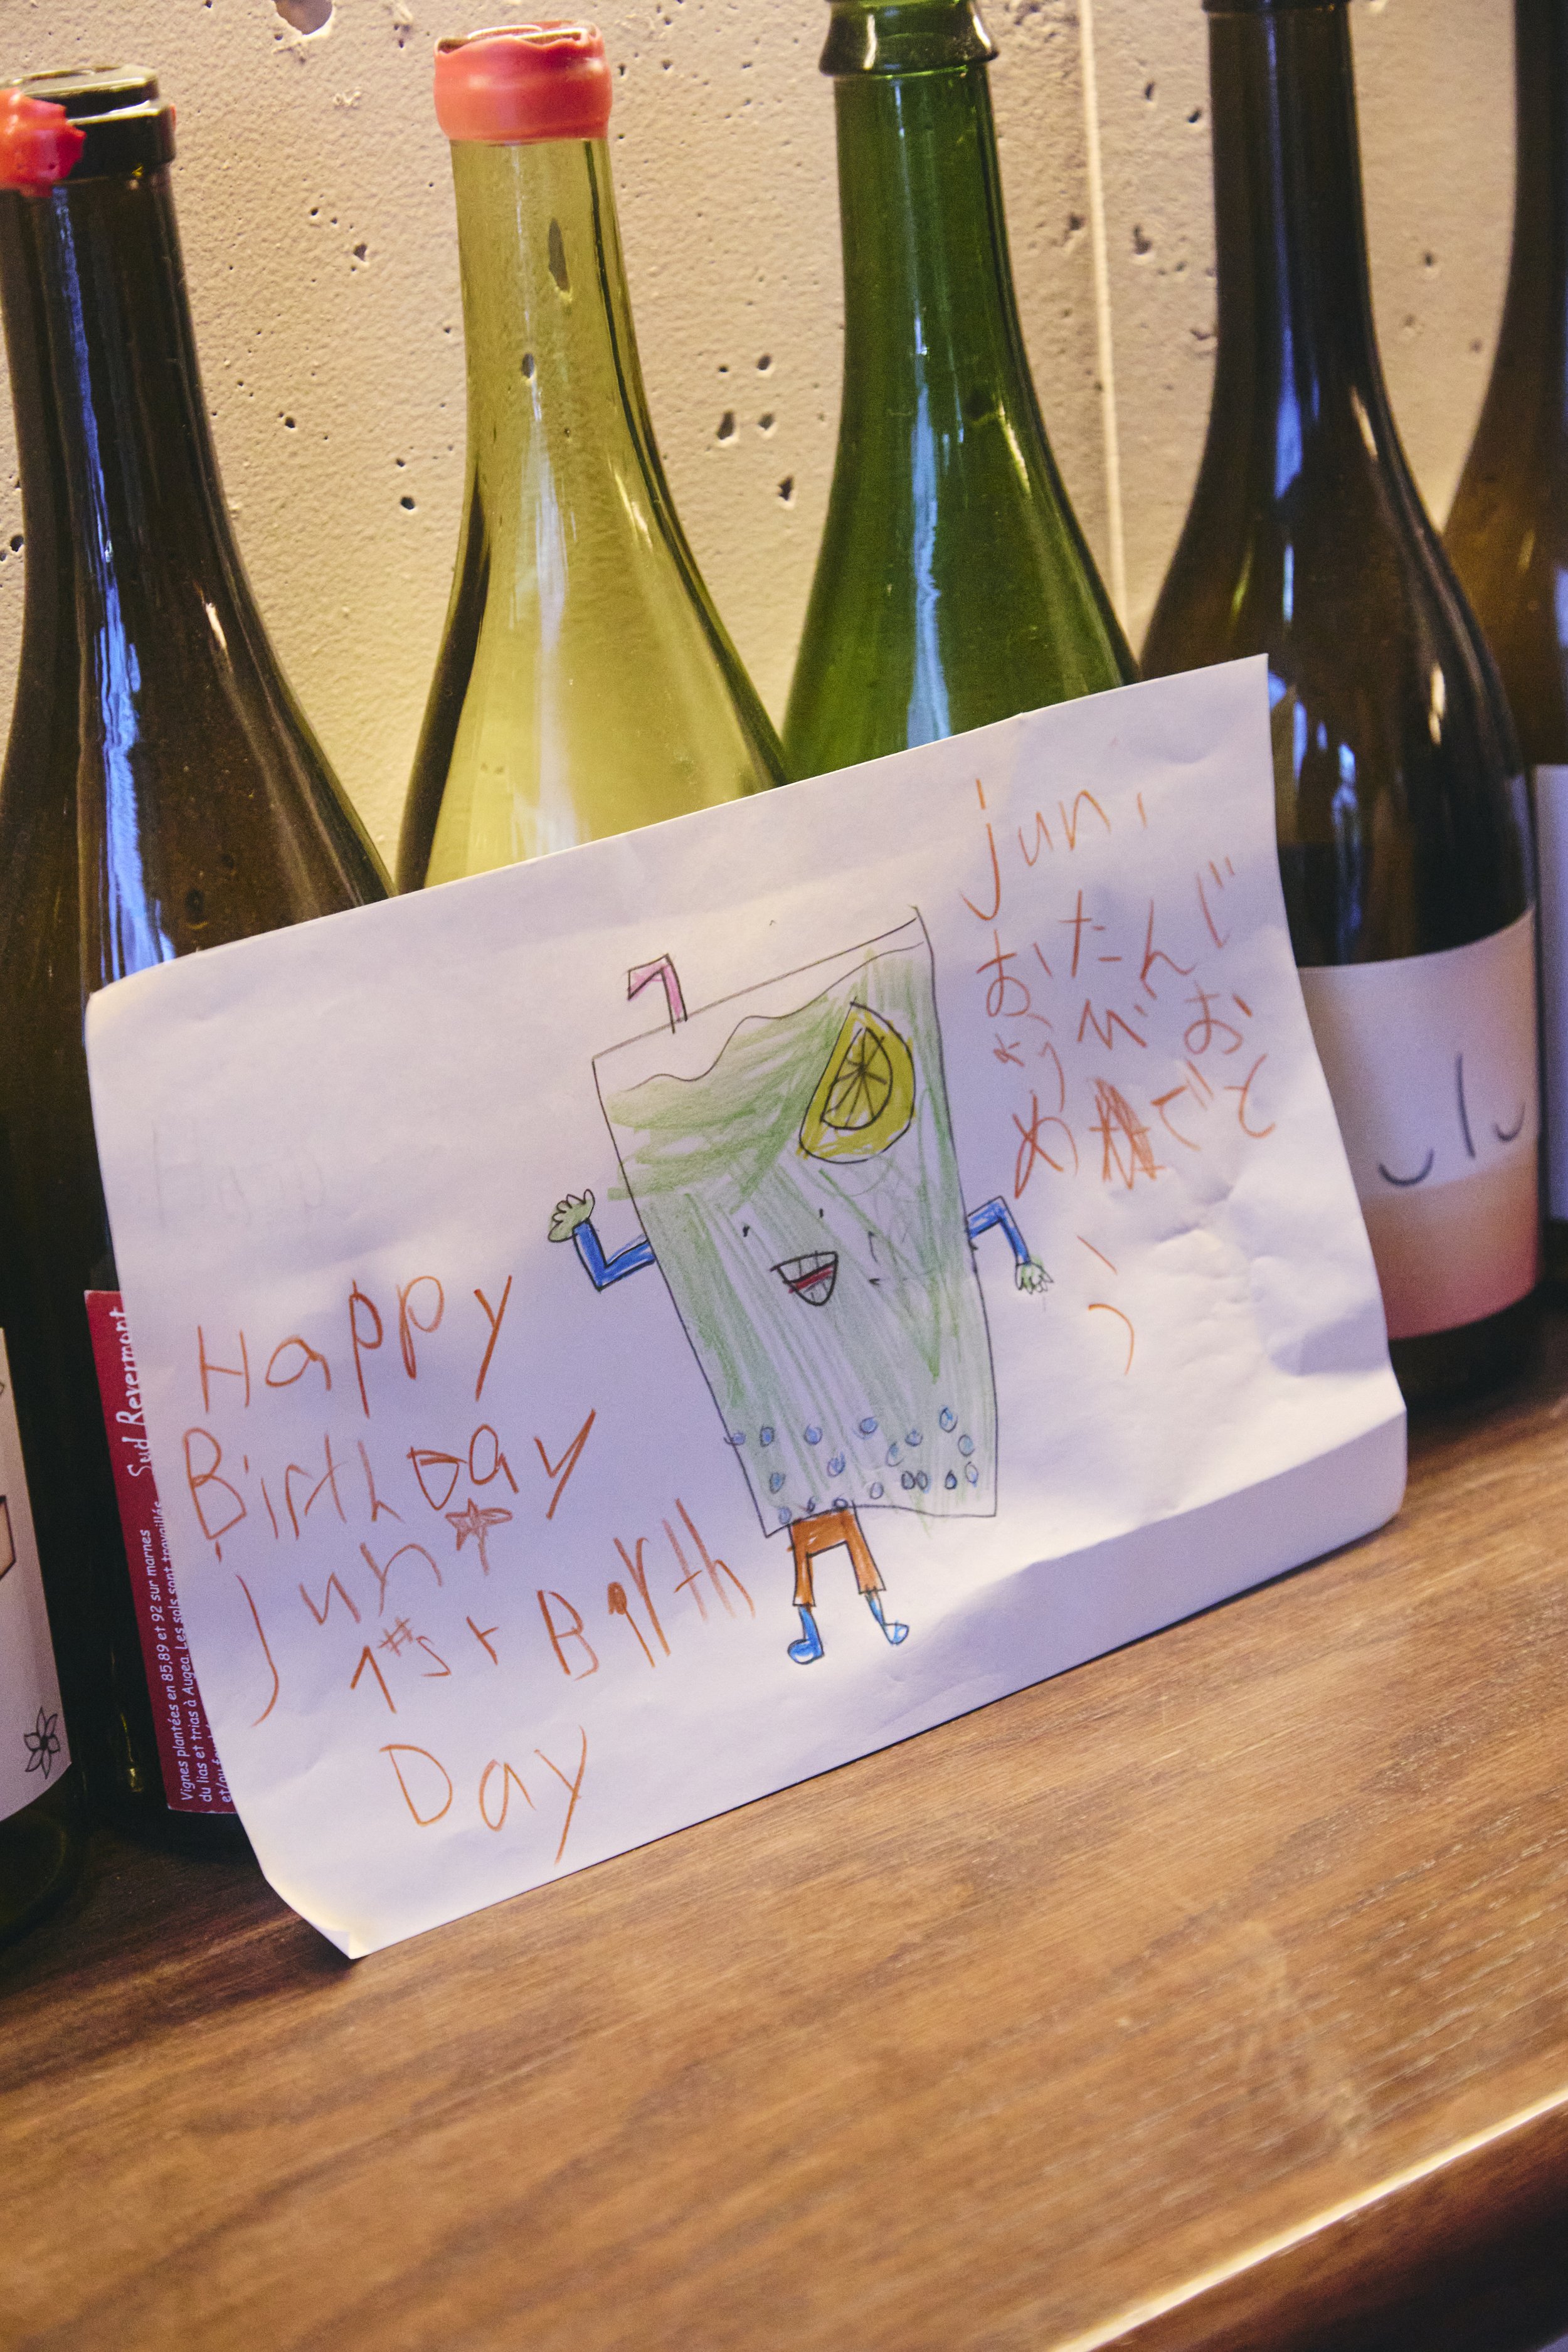 Happy
Birth Day
juni
1#st Birth
Day
juni
おたんじ
ょうびお
めでと
う
Sud Revermont
Vignes plantées en 85,89 et 92 sur marnes
du lias et trias à Augea. Les sols sont travaillés
ulu